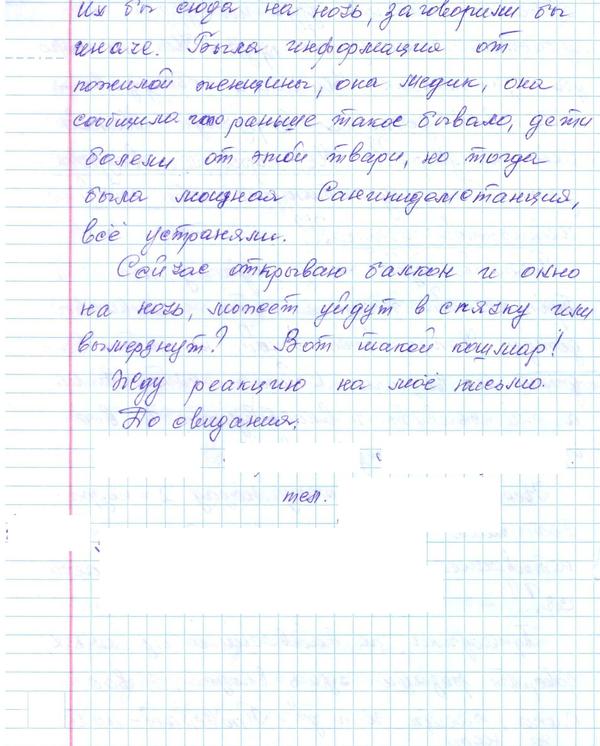 Их бы сюда на ночь, заговорили бы
иначе. Была информация от
пожилой женщины, она медик, она
сообщила что раньше такое бывало, дети
болели от этой твари, но тогда
была мощная Санэпидемстанция,
всё устраняли.
Сейчас открываю балкон и окно
на ночь, может уйдут в спячку или
вымерзнут? Вот такой кошмар!
Жду реакцию на моё письмо.
До свидания.
тел.